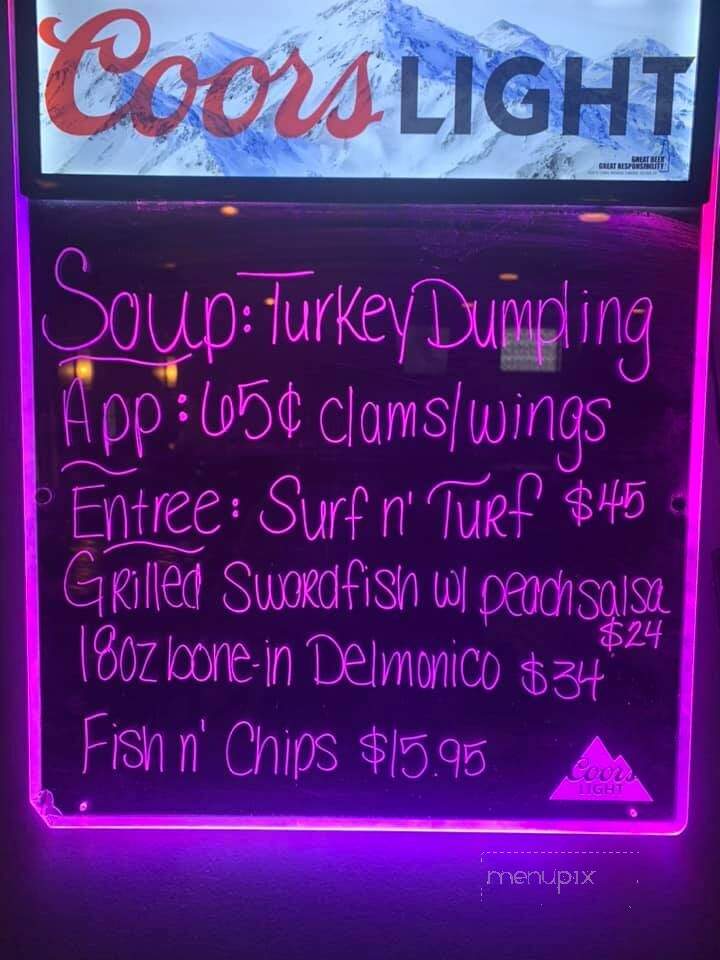 Coors LIGHT
GREAT BEER
GREAT RESPONSIBILITY
Soup: Turkey Dumpling
App: 65¢ clams/wings
Entree: Surf n' Turf $45
Grilled Swordfish w/ peach salsa
$24
18oz bone-in Delmonico $34
Fish n' Chips $15.95
Coors
LIGHT
menupix